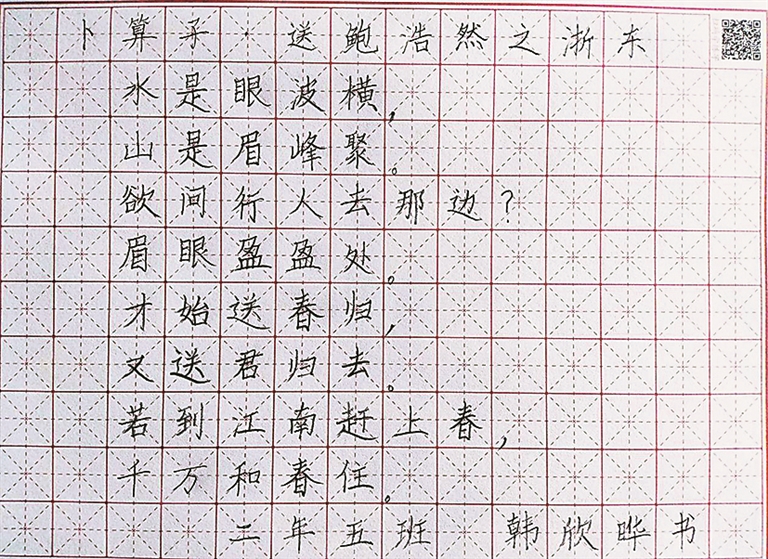 卜算子·送鲍浩然之浙东
水是眼波横，
山是眉峰聚。
欲间行人去那边？
眉眼盈盈处。
才始送春归，
又送君归去。
若到江南赶上春，
千万和春住。
二年五班 韩欣晔书